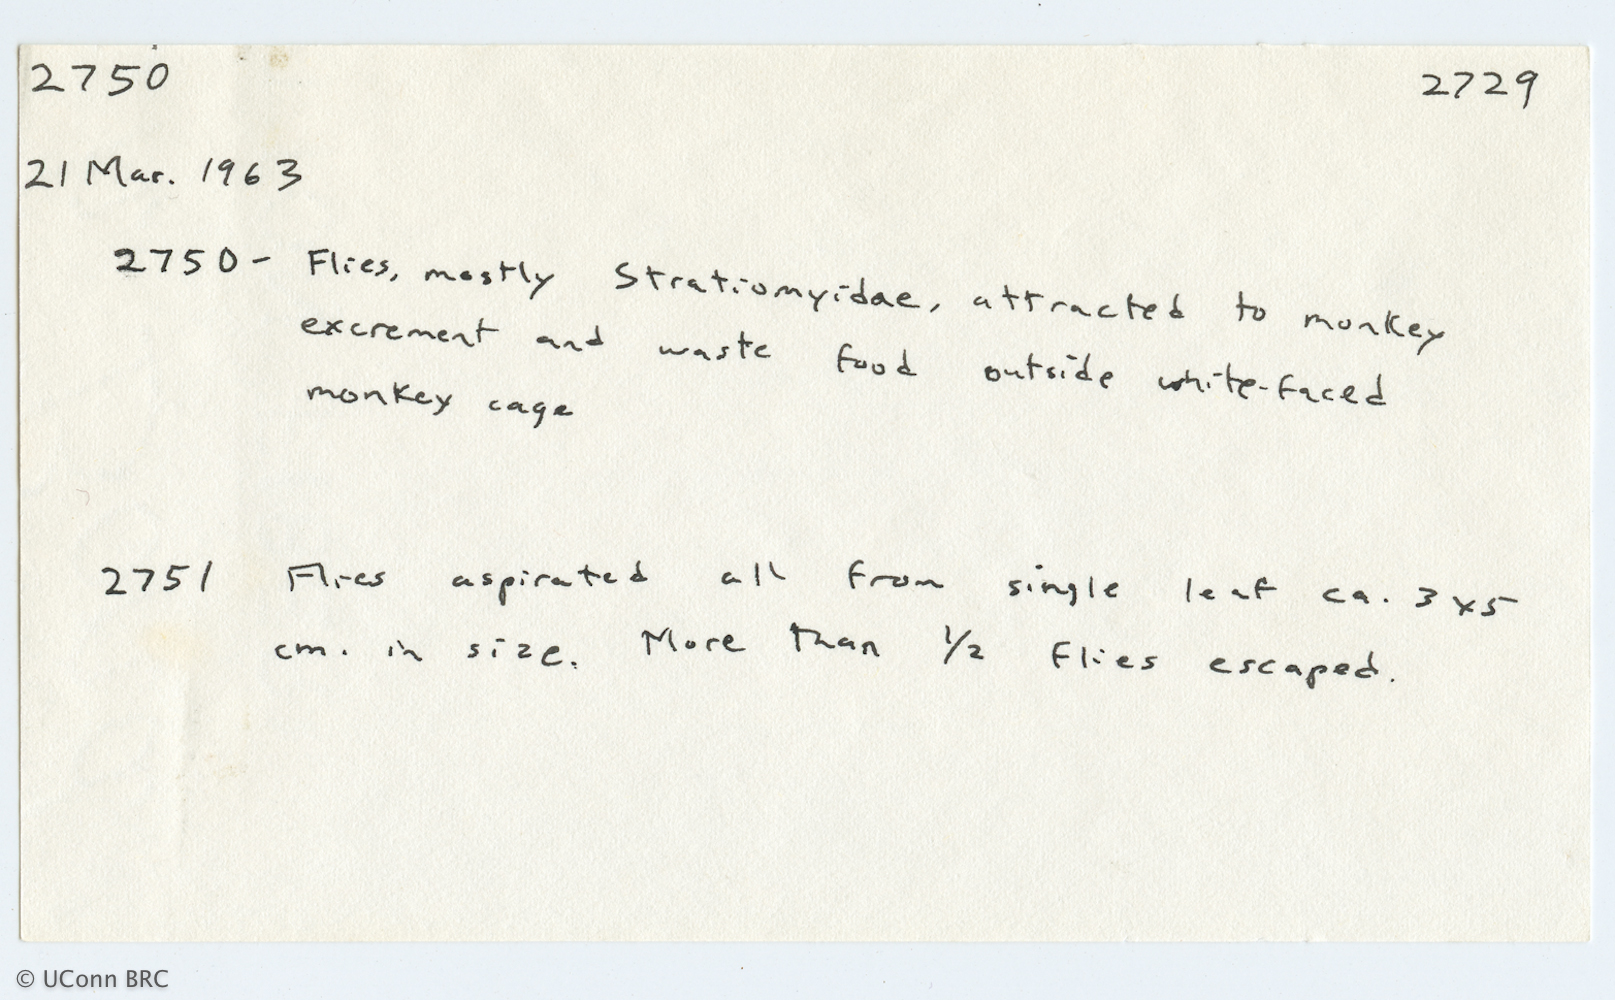 2750 2729
21 Mar. 1963
2750- Flies, mostly Stratiomyidae, attracted to monkey
excrement and waste food outside white-faced
monkey cage
2751 Flies aspirated all from single leaf ca. 3x5
cm. in size. More than 1/2 flies escaped.
© UConn BRC